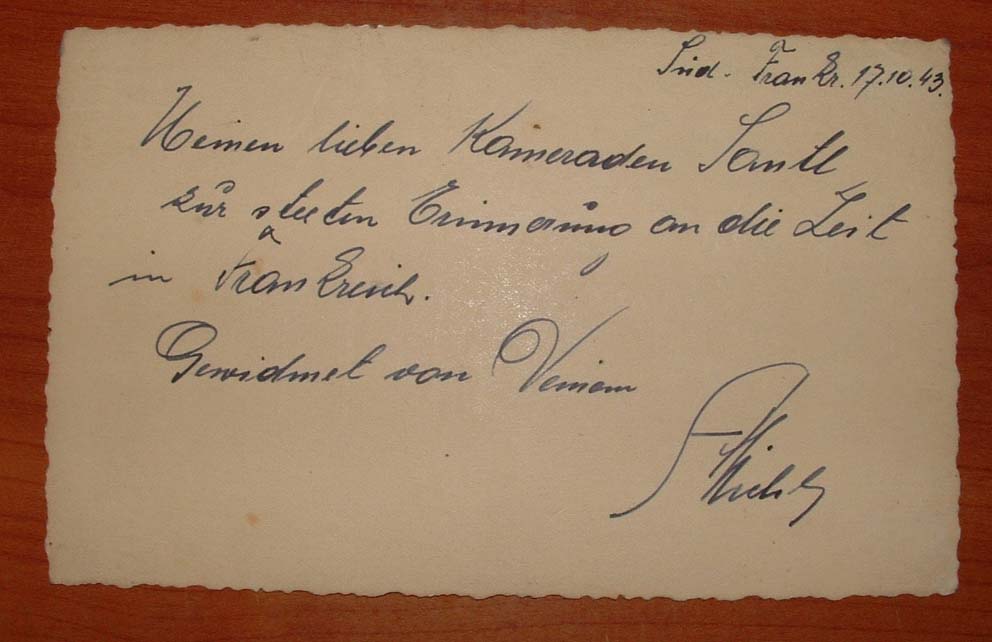 Süd. Frankr. 17.10.43.
Meinen lieben Kameraden
zur steeten Erinnerung an die Zeit
in Frankreich.
Gewidmet von Deinem